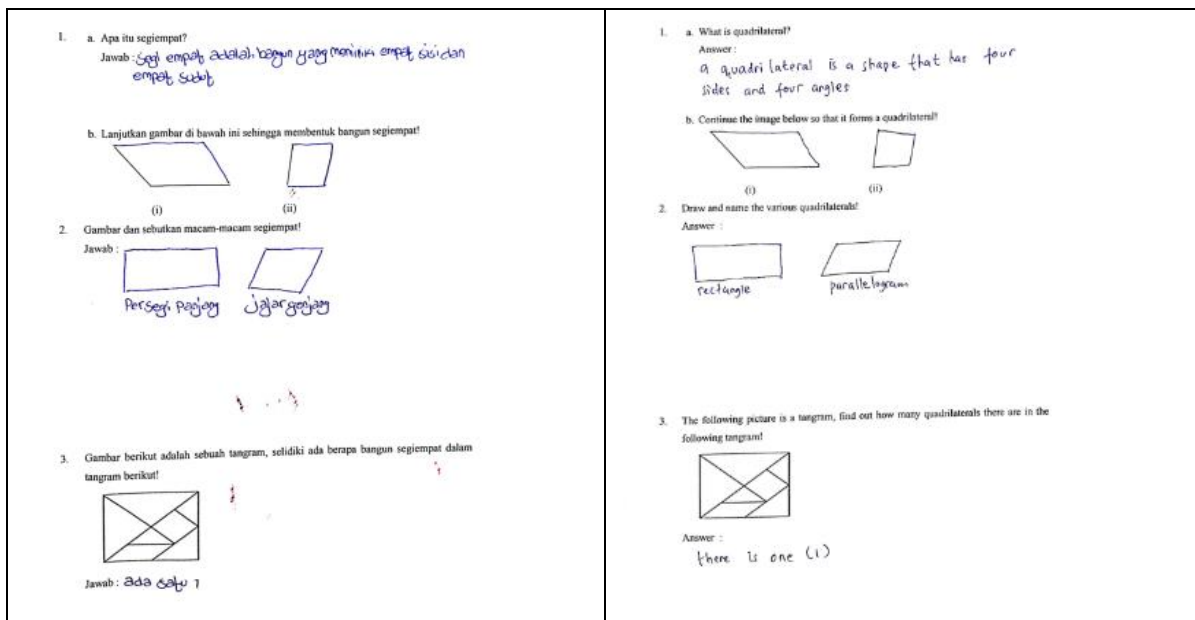 1. a. Apa itu segiempat?
Jawab : Segi empat adalah bangun yang memiliki empat sisi dan
empat sudut
b. Lanjutkan gambar di bawah ini sehingga membentuk bangun segiempat!
(i) (ii)
2. Gambar dan sebutkan macam-macam segiempat!
Jawab :
Persegi Panjang jajar genjang
3. Gambar berikut adalah sebuah tangram, selidiki ada berapa bangun segiempat dalam
tangram berikut!
Jawab : ada satu 1
1. a. What is quadrilateral?
Answer :
a quadrilateral is a shape that has four
sides and four angles
b. Continue the image below so that it forms a quadrilateral!
(i) (ii)
2. Draw and name the various quadrilaterals!
Answer :
rectangle parallelogram
3. The following picture is a tangram, find out how many quadrilaterals there are in the
following tangram!
Answer :
there is one (1)